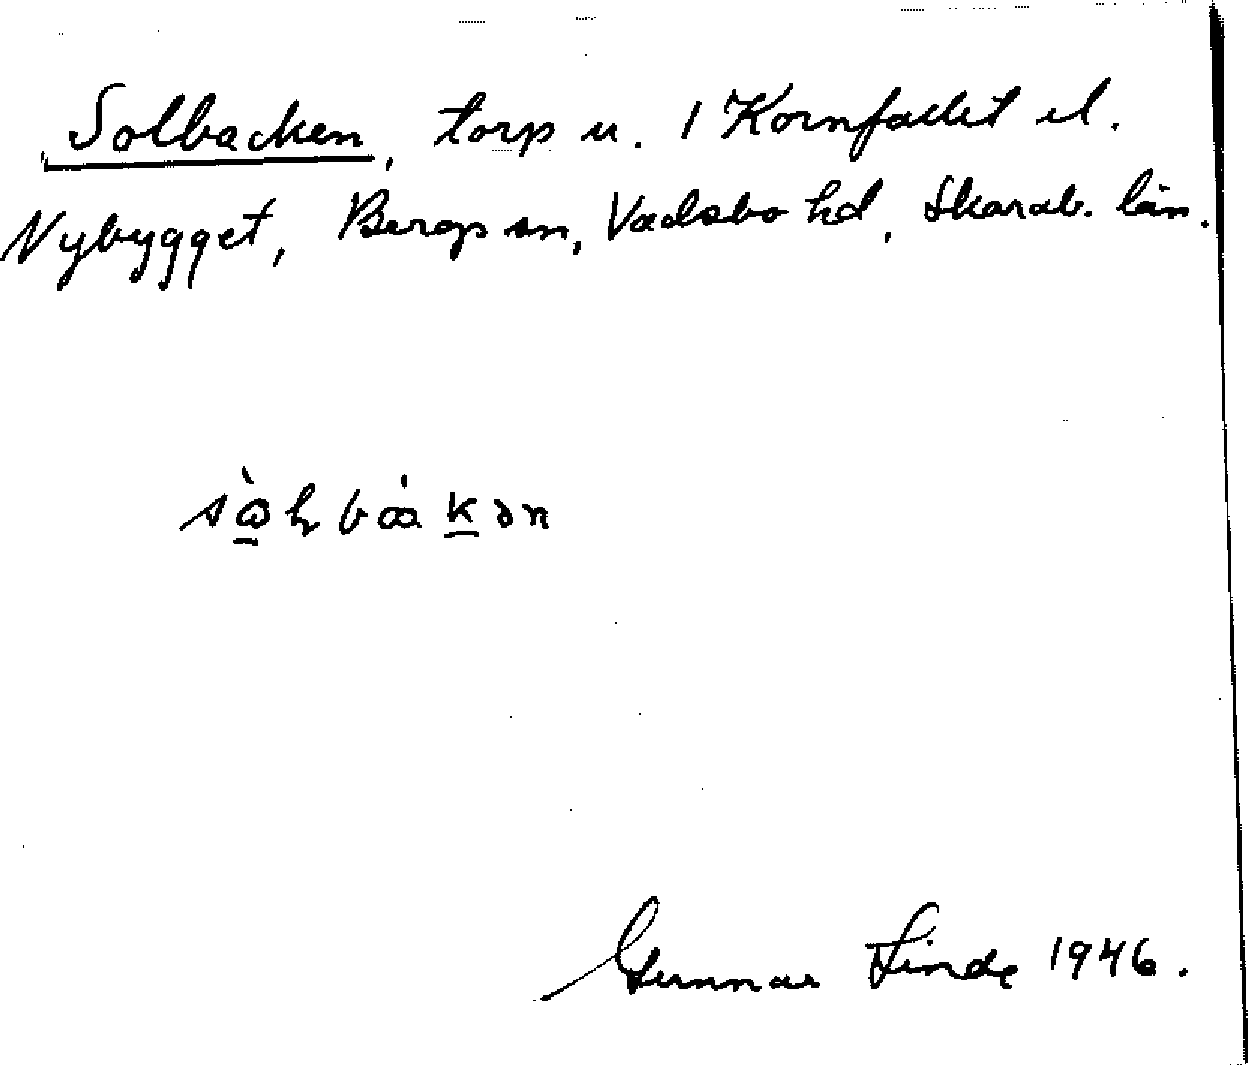 Solbacken, torp u. 1 Kornfallet el.
Nybygget, Bergs sn, Vadsbo hd, Skarab. län.
Gunnar Linde 1946.